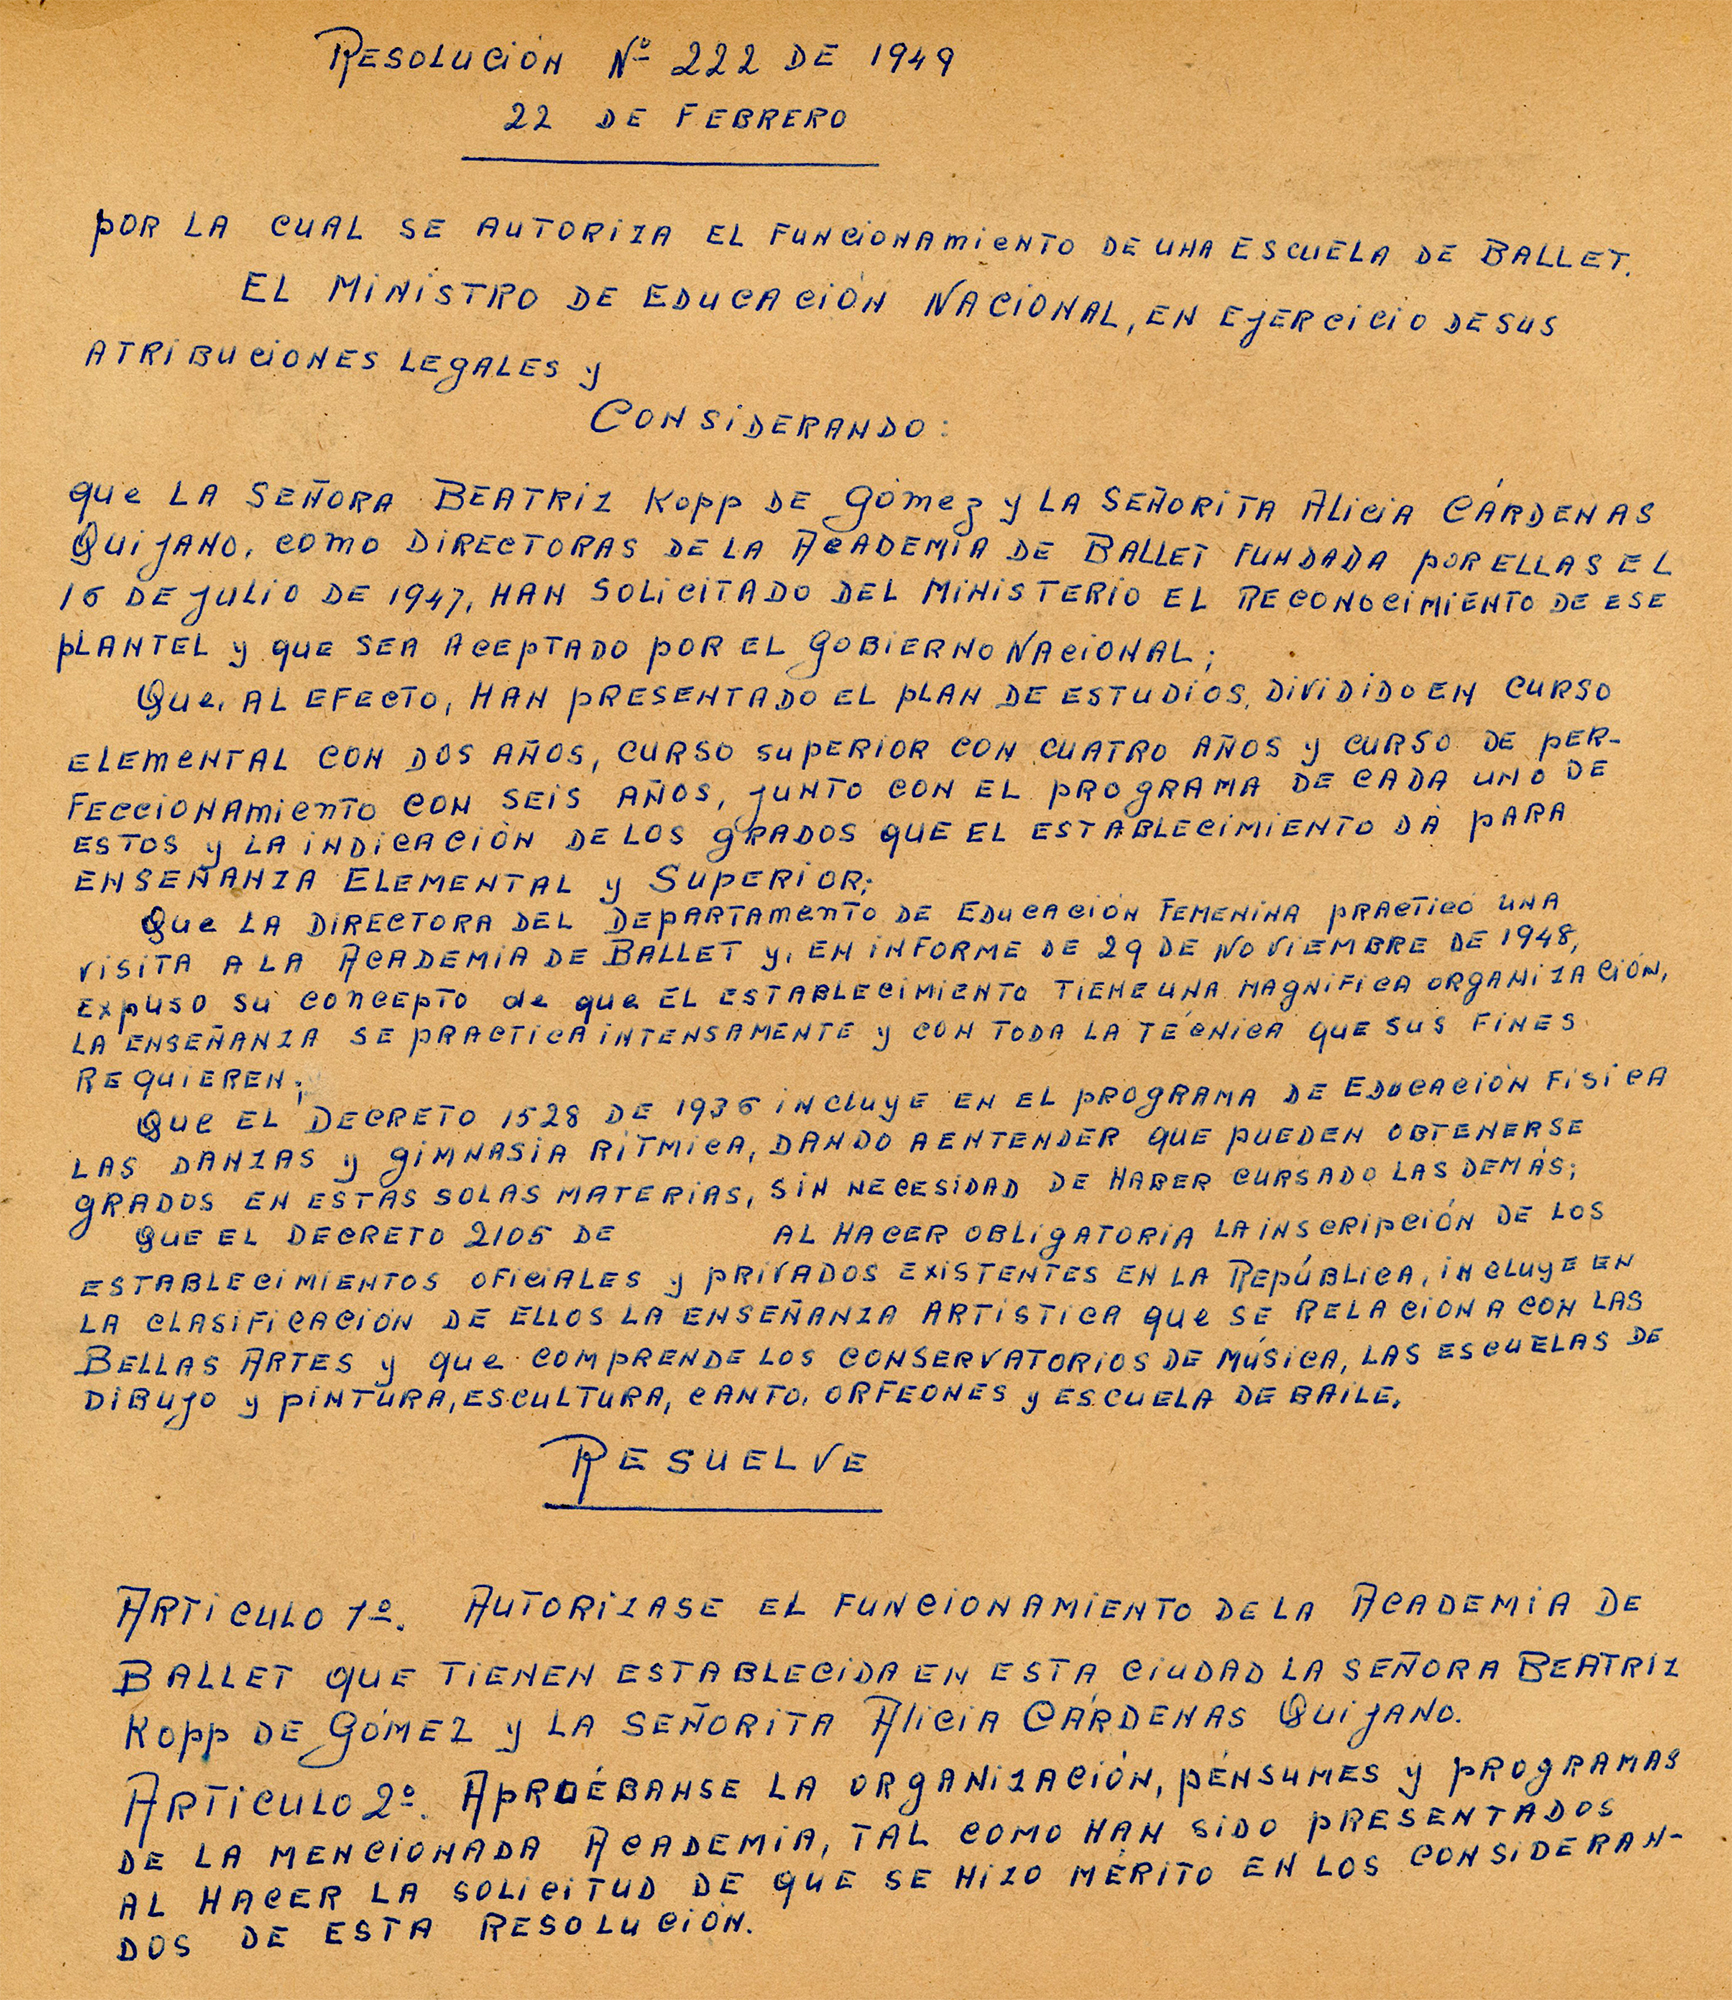 Resolución Nº 222 de 1949
22 de Febrero
por la cual se autoriza el funcionamiento de una escuela de Ballet.
El Ministro de Educación Nacional, en ejercicio de sus
atribuciones legales y
Considerando:
que la Señora Beatriz Kopp de Gómez y la Señorita Alicia Cárdenas
Quijano, como directoras de la Academia de Ballet fundada por ellas el
16 de julio de 1947, han solicitado del Ministerio el reconocimiento de ese
plantel y que sea aceptado por el Gobierno Nacional;
Que, al efecto, han presentado el plan de estudios, dividido en curso
elemental con dos años, curso superior con cuatro años y curso de per-
feccionamiento con seis años, junto con el programa de cada uno de
estos y la indicación de los grados que el establecimiento dá para
enseñanza Elemental y Superior;
Que la directora del Departamento de Educación Femenina practicó una
visita a la Academia de Ballet y, en informe de 29 de Noviembre de 1948,
expuso su concepto de que el establecimiento tiene una magnífica organización,
la enseñanza se practica intensamente y con toda la técnica que sus fines
requieren;
Que el Decreto 1528 de 1936 incluye en el programa de Educación Física
las danzas y gimnasia rítmica, dando a entender que pueden obtenerse
grados en estas solas materias, sin necesidad de haber cursado las demás;
Que el decreto 2105 de al hacer obligatoria la inscripción de los
establecimientos oficiales y privados existentes en la República, incluye en
la clasificación de ellos la enseñanza artística que se relaciona con las
Bellas Artes y que comprende los conservatorios de música, las escuelas de
dibujo y pintura, escultura, canto, orfeones y escuela de baile.
Resuelve
Artículo 1º. Autorízase el funcionamiento de la Academia de
Ballet que tienen establecida en esta ciudad la Señora Beatriz
Kopp de Gómez y la Señorita Alicia Cárdenas Quijano.
Artículo 2º. Apruébanse la organización, pénsumes y programas
de la mencionada Academia, tal como han sido presentados
al hacer la solicitud de que se hizo mérito en los consideran-
dos de esta resolución.